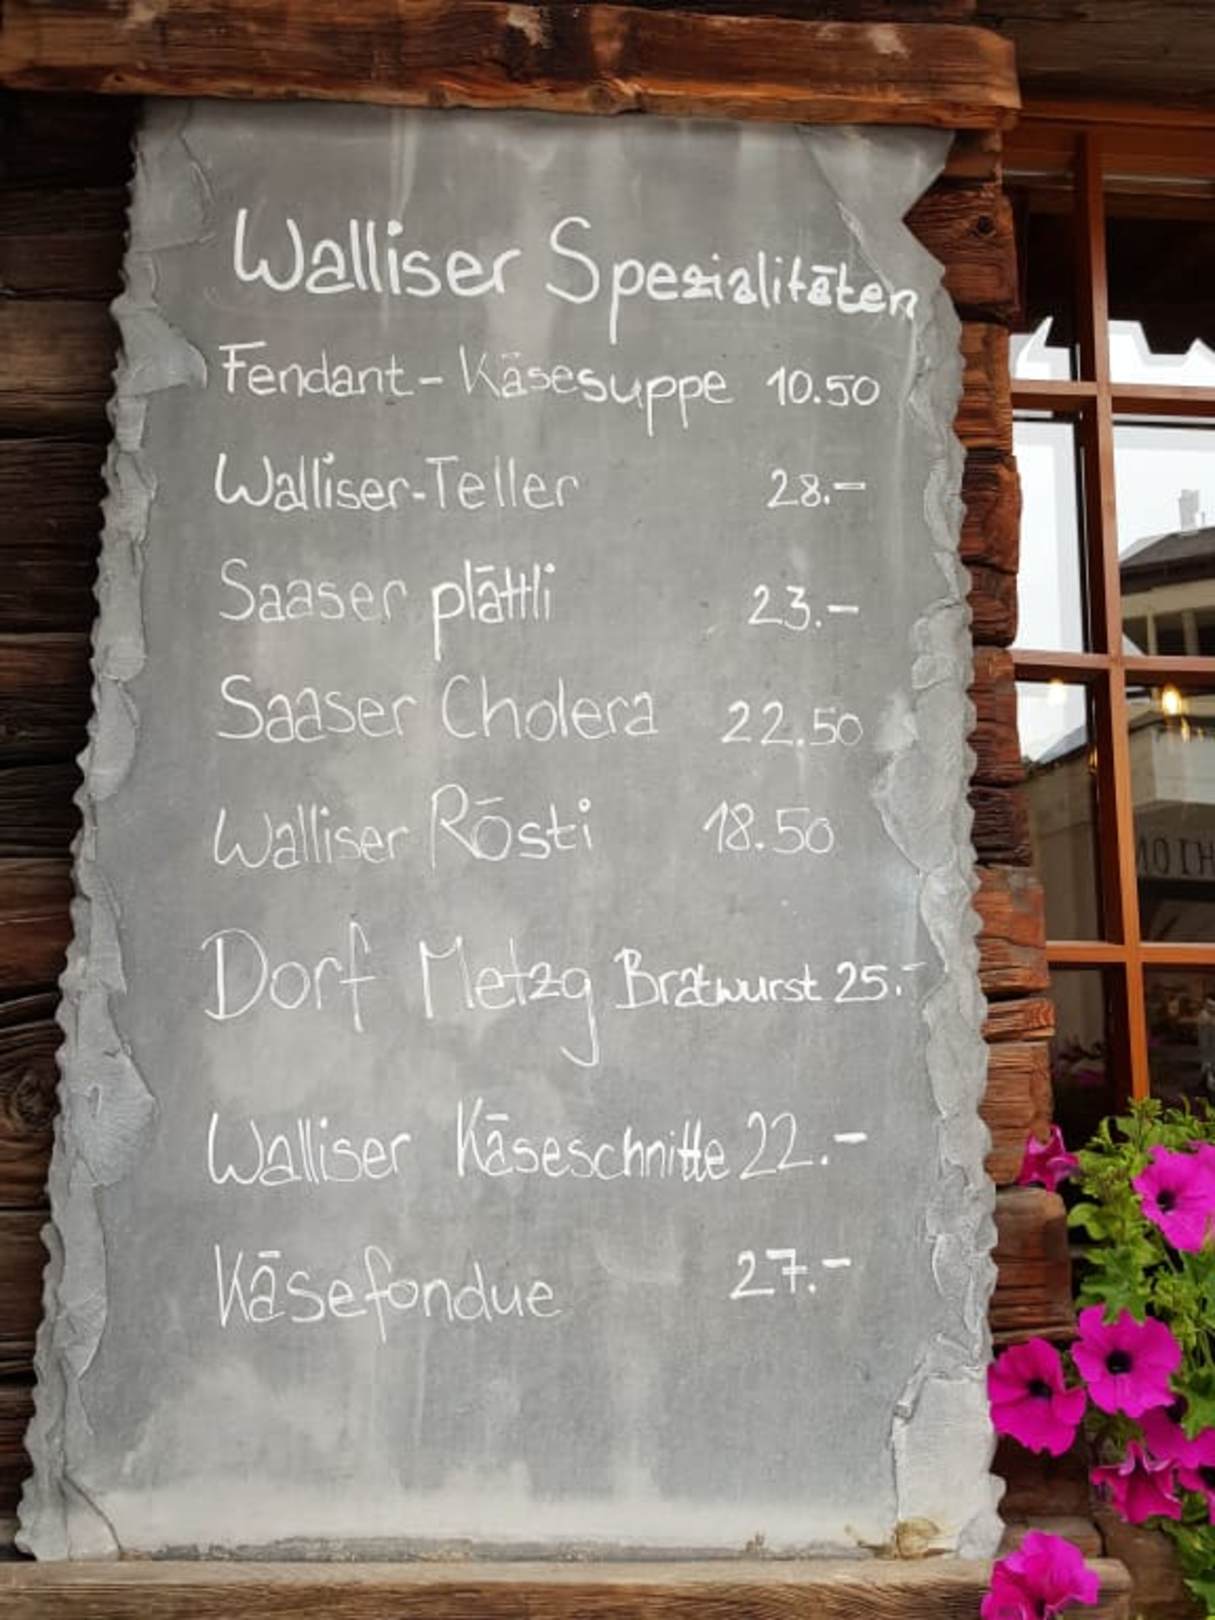 Walliser Spezialitäten
Fendant-Käsesuppe 10.50
Walliser-Teller 28.-
Saaser plättli 23.-
Saaser Cholera 22.50
Walliser Rösti 18.50
Dorf Metzg Bratwurst 25.-
Walliser Käseschnitte 22.-
Käsefondue 27.-